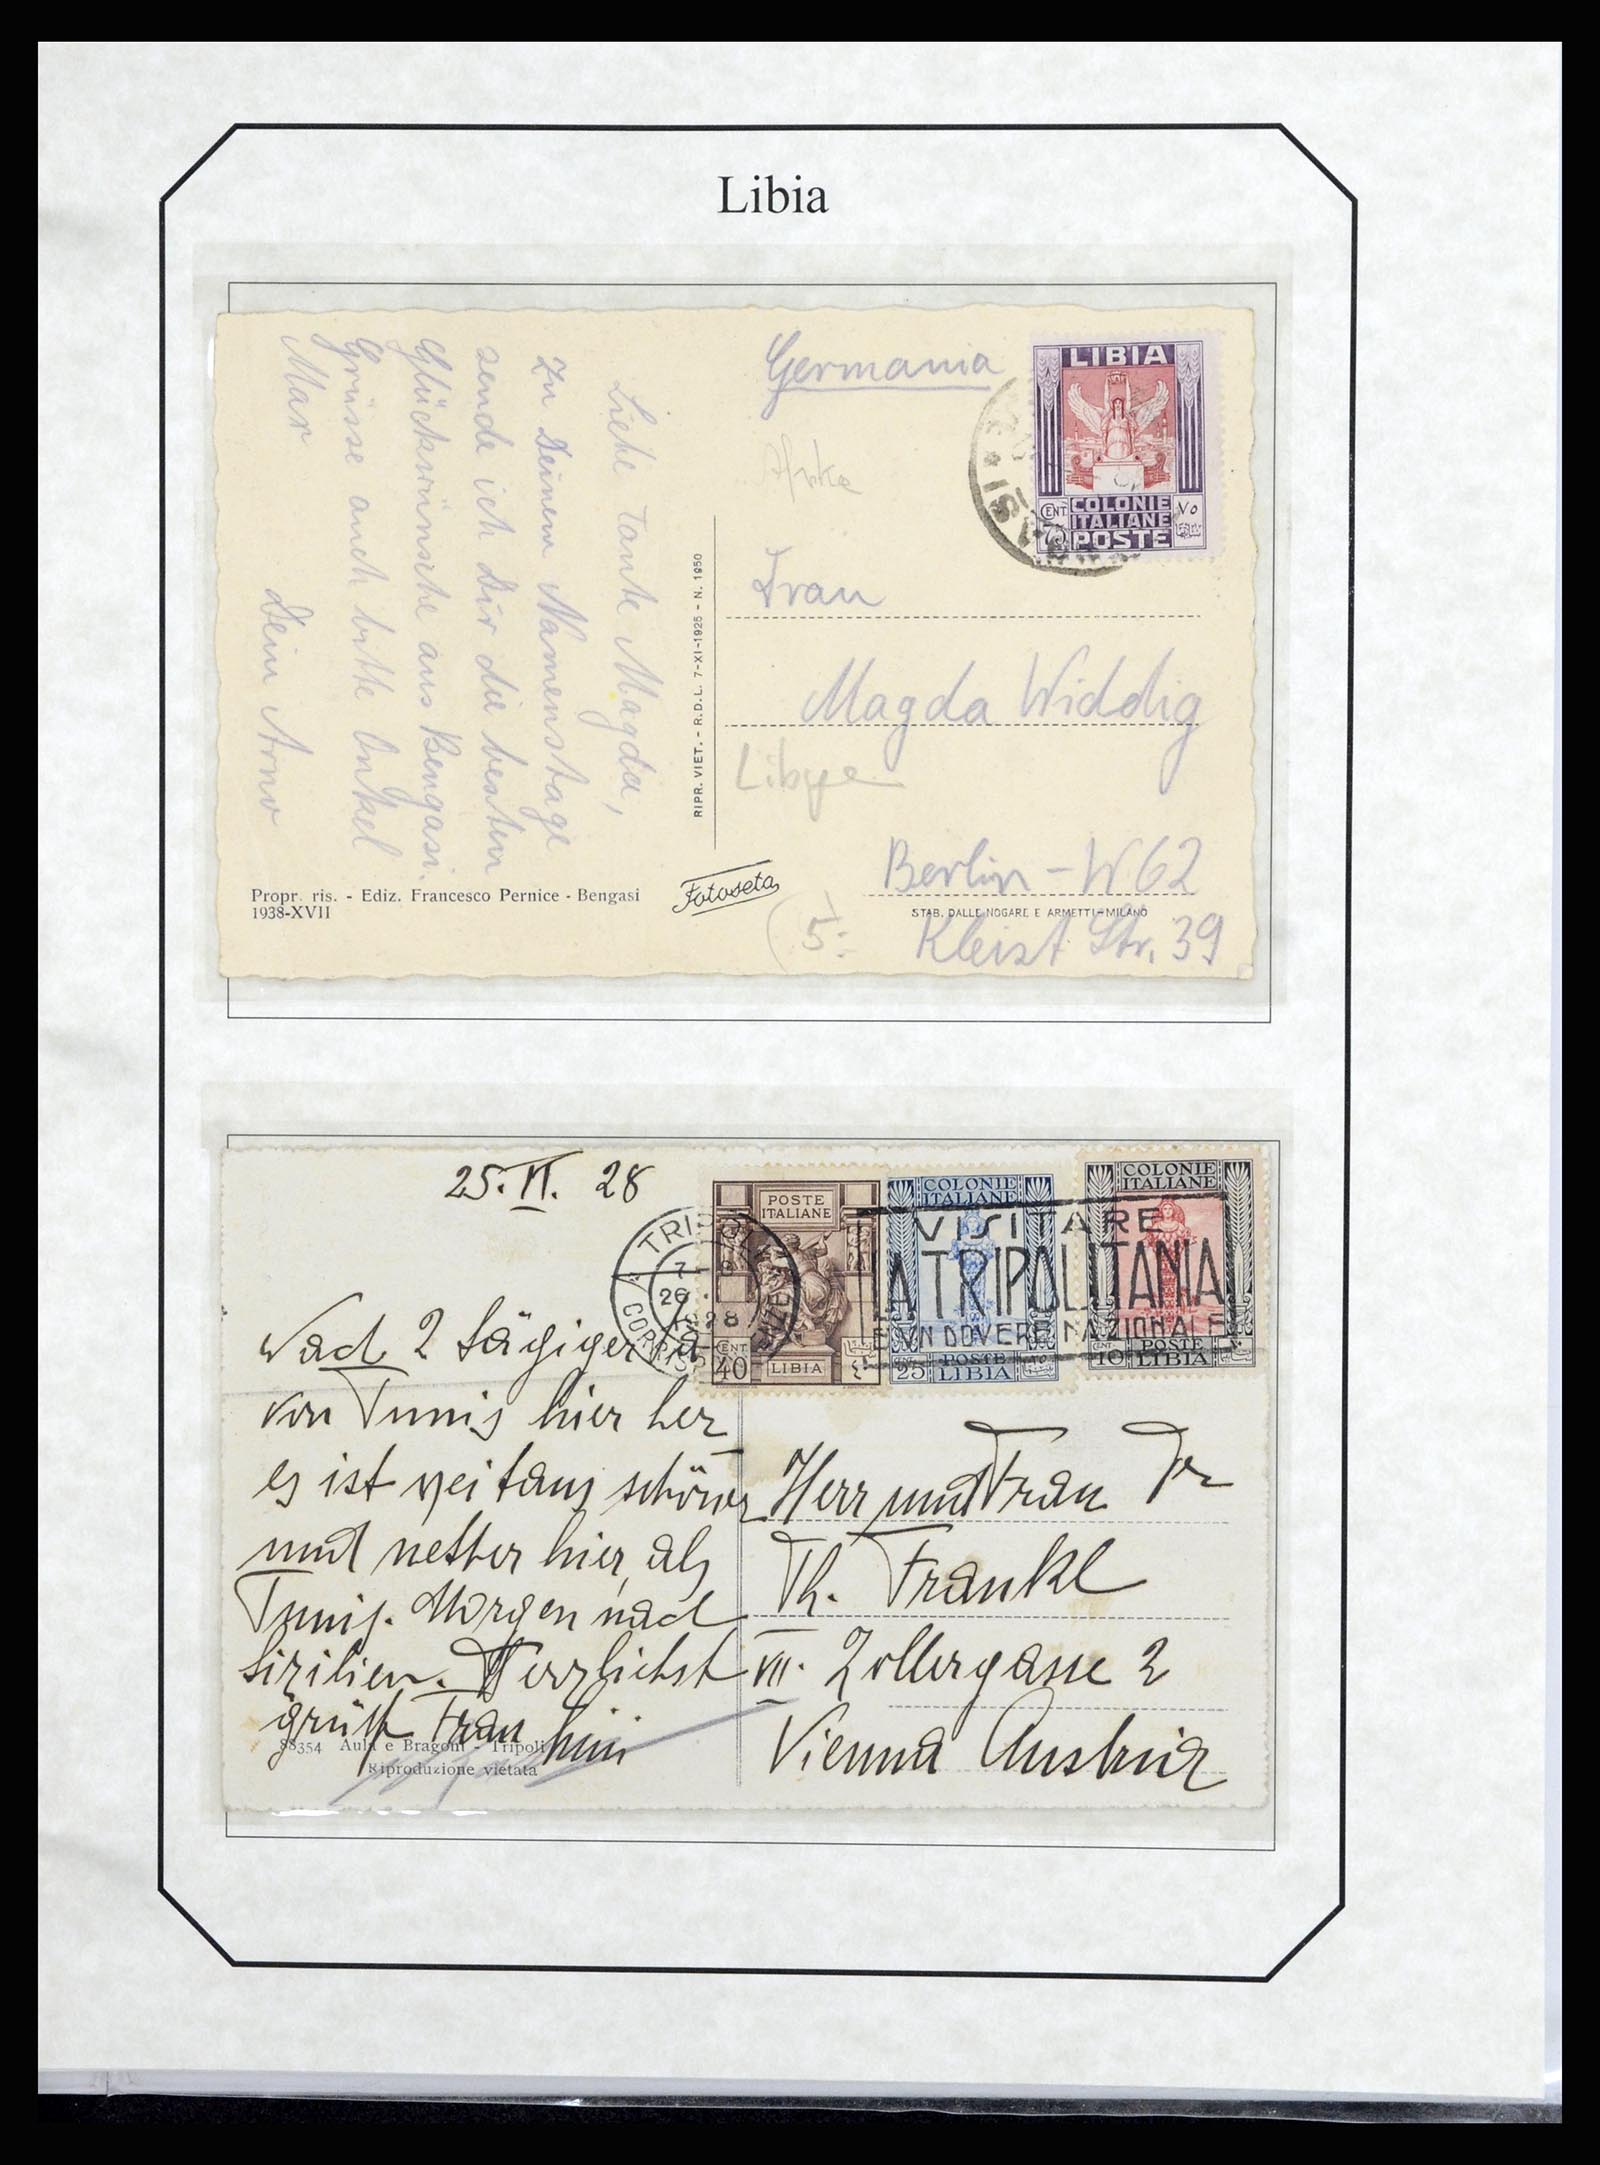 Libia
Germania
LIBIA
CENT 75
COLONIE
ITALIANE
POSTE
Liebe Tante Magda,
Zu Deinem Namenstage
sende ich Dir die besten
Glückwünsche aus Bengasi.
Grüsse auch bitte Onkel
Max
Dein Arno
Frau
Magda Widdig
Libye
Berlin-W62
Kleist Str. 39
RIPR. VIET. - R.D.L. 7-XI-1925 - N. 1950
Propr. ris. - Ediz. Francesco Pernice - Bengasi
1938-XVII
Fotoseta
STAB. DALLE NOGARE E ARMETTI-MILANO
5.-
25. VI. 28
TRIPOLI
26
28
POSTE
ITALIANE
CENT 40
LIBIA
COLONIE
ITALIANE
25
POSTE
LIBIA
COLONIE
ITALIANE
CENT 10
POSTE
LIBIA
VISITARE
LA TRIPOLITANIA
E VN DOVERE NAZIONALE
Nach 2 tägiger
von Tunis hier her
es ist weitaus schöner
und netter hier, als
Tunis. Morgen nach
Sizilien. Herzlichst
grüßt Frau
88354 Aula e Bragoni - Tripoli
Riproduzione vietata
Herr und Frau Dr
Th. Frankl
VII. Zollergasse 2
Vienna Austria